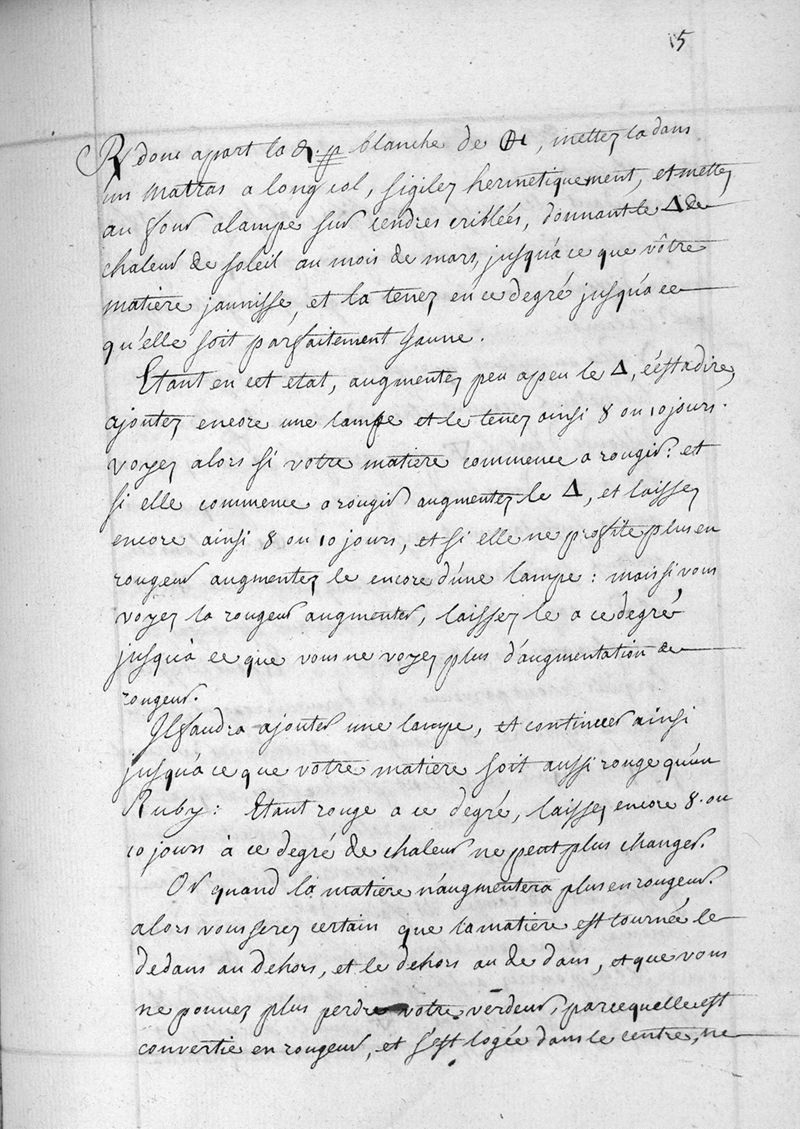 5
R donc apart la blanche de , mettez la dans
un matras a long col, sigilez hermetiquement, et mettez
au four alampe sur cendres criblées, donnant le Δ de
chaleur de soleil au mois de mars, jusqu'a ce que vôtre
matiere jaunisse, et la tenez en ce degré jusqu'a ce
qu'elle soit parfaitement Jaune.
Etant en cet etat, augmentez peu apeu le Δ, c'estadire,
ajoutez encore une lampe et le tenez ainsi 8 ou 10 jours.
voyez alors si votre matiere commence a rougir: et
si elle commence a rougir augmentez le Δ, et laissez
encore ainsi 8 ou 10 jours, et si elle ne profite plus en
rougeur augmentez le encore d'une lampe: mais si vous
voyez la rougeur augmenter, laissez le a ce degré
jusqu'à ce que vous ne voyez plus d'augmentation de
rougeur.
Il faudra ajouter une lampe, et continuer ainsi
jusqu'a ce que votre matiere soit aussi rouge qu'un
Ruby: Etant rouge a ce degré, laissez encore 8. ou
10 jours à ce degré de chaleur ne peut plus changer.
Or quand la matiere n'augmentera plus en rougeur.
alors vous serez certain que la matiere est tournée le
dedans au dehors, et le dehors au de dans, et que vous
ne pouvez plus perdre votre verdeur, parcequelle est
convertie en rougeur, et s'est logée dans le centre, ne